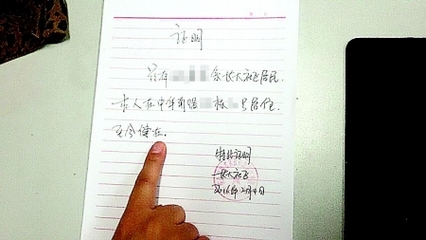 证明
兹有 系长大社区居民.
本人在中华 栋 号居住.
至今健在.
特此证明
长大社区
2016年2月4日